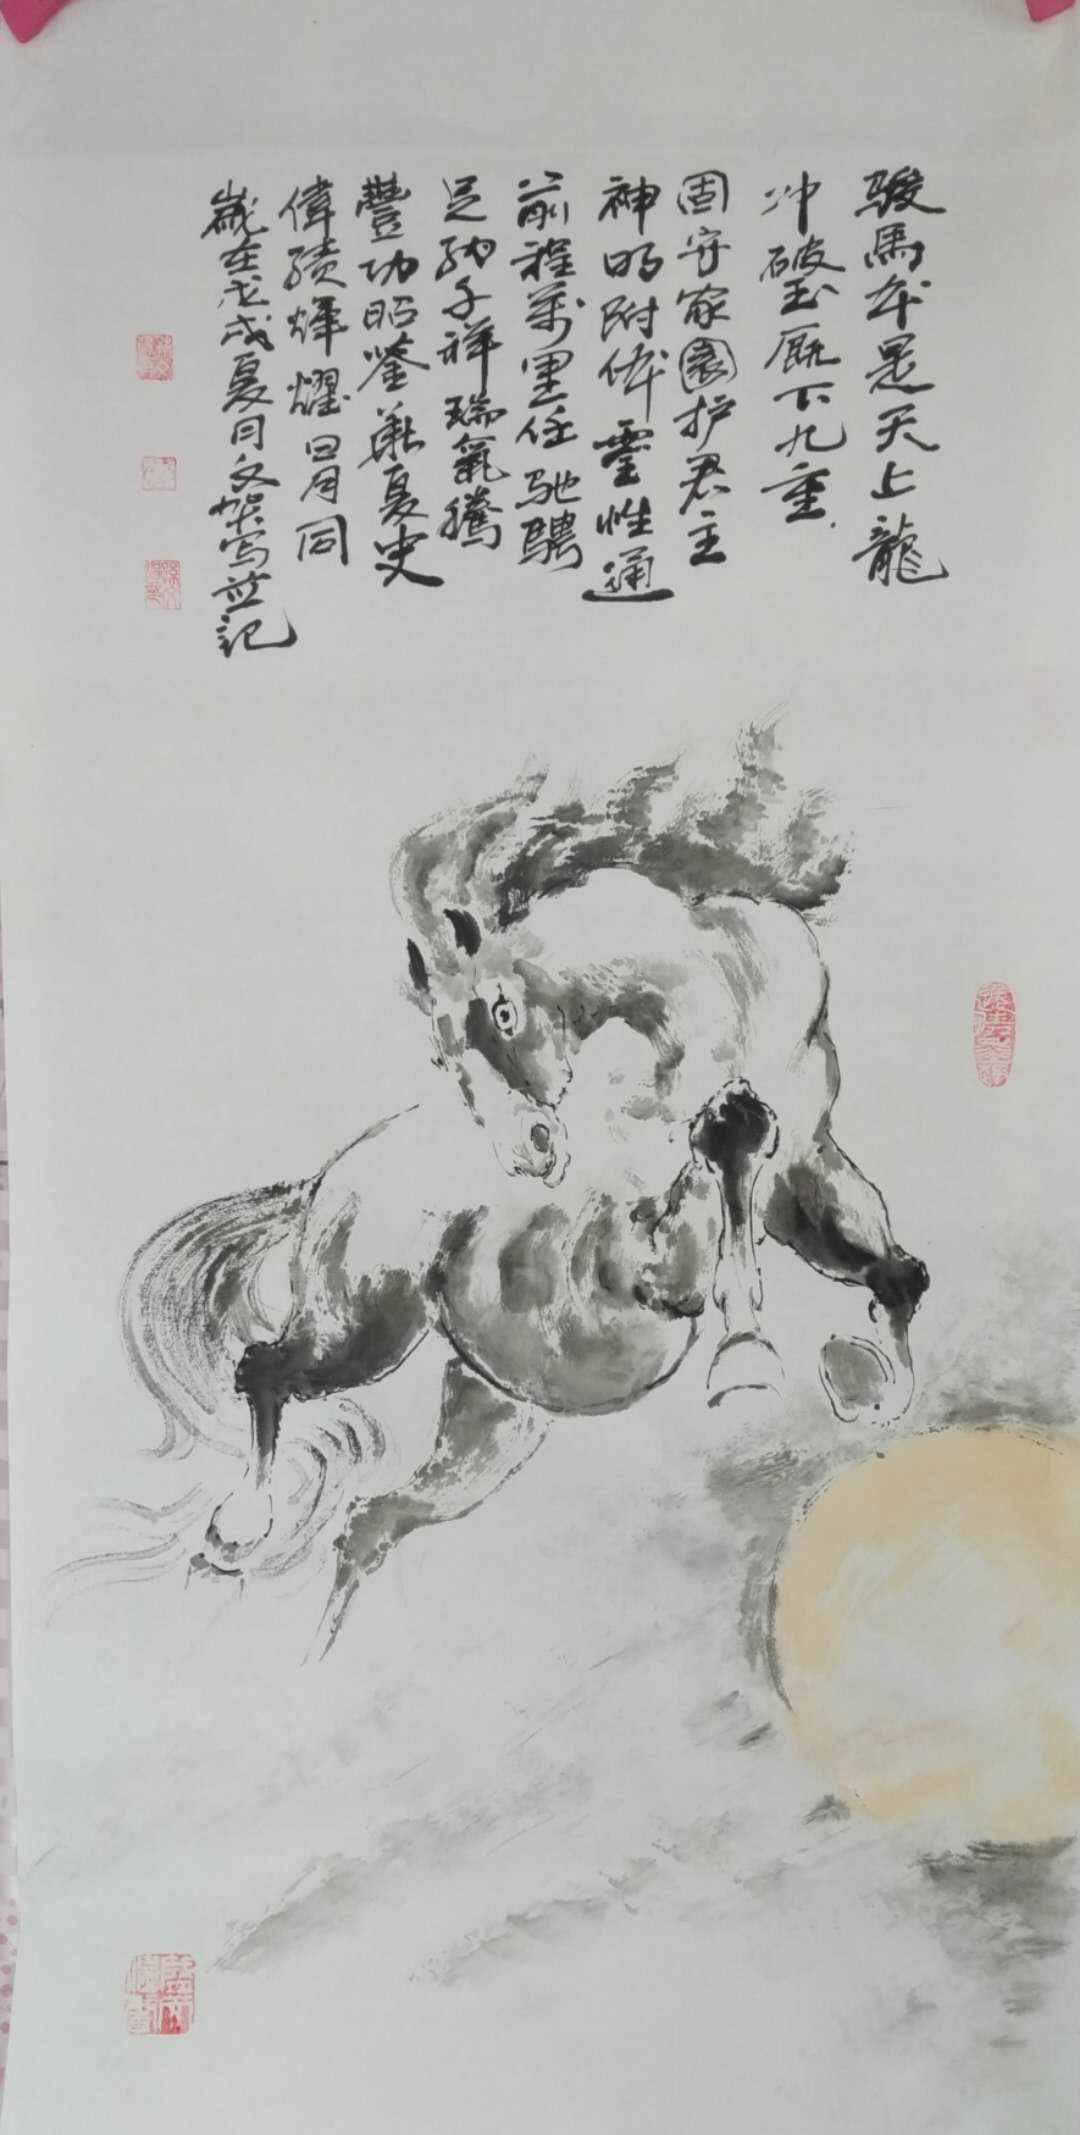 駿馬本是天上龍
冲破玉厩下九重
固守家園护君主
神明附体靈性通
前程萬里任馳騁
足踏千祥瑞氣騰
豐功昭鉴華夏史
偉績輝耀日月同
歲在戊戌夏月文傑写並記